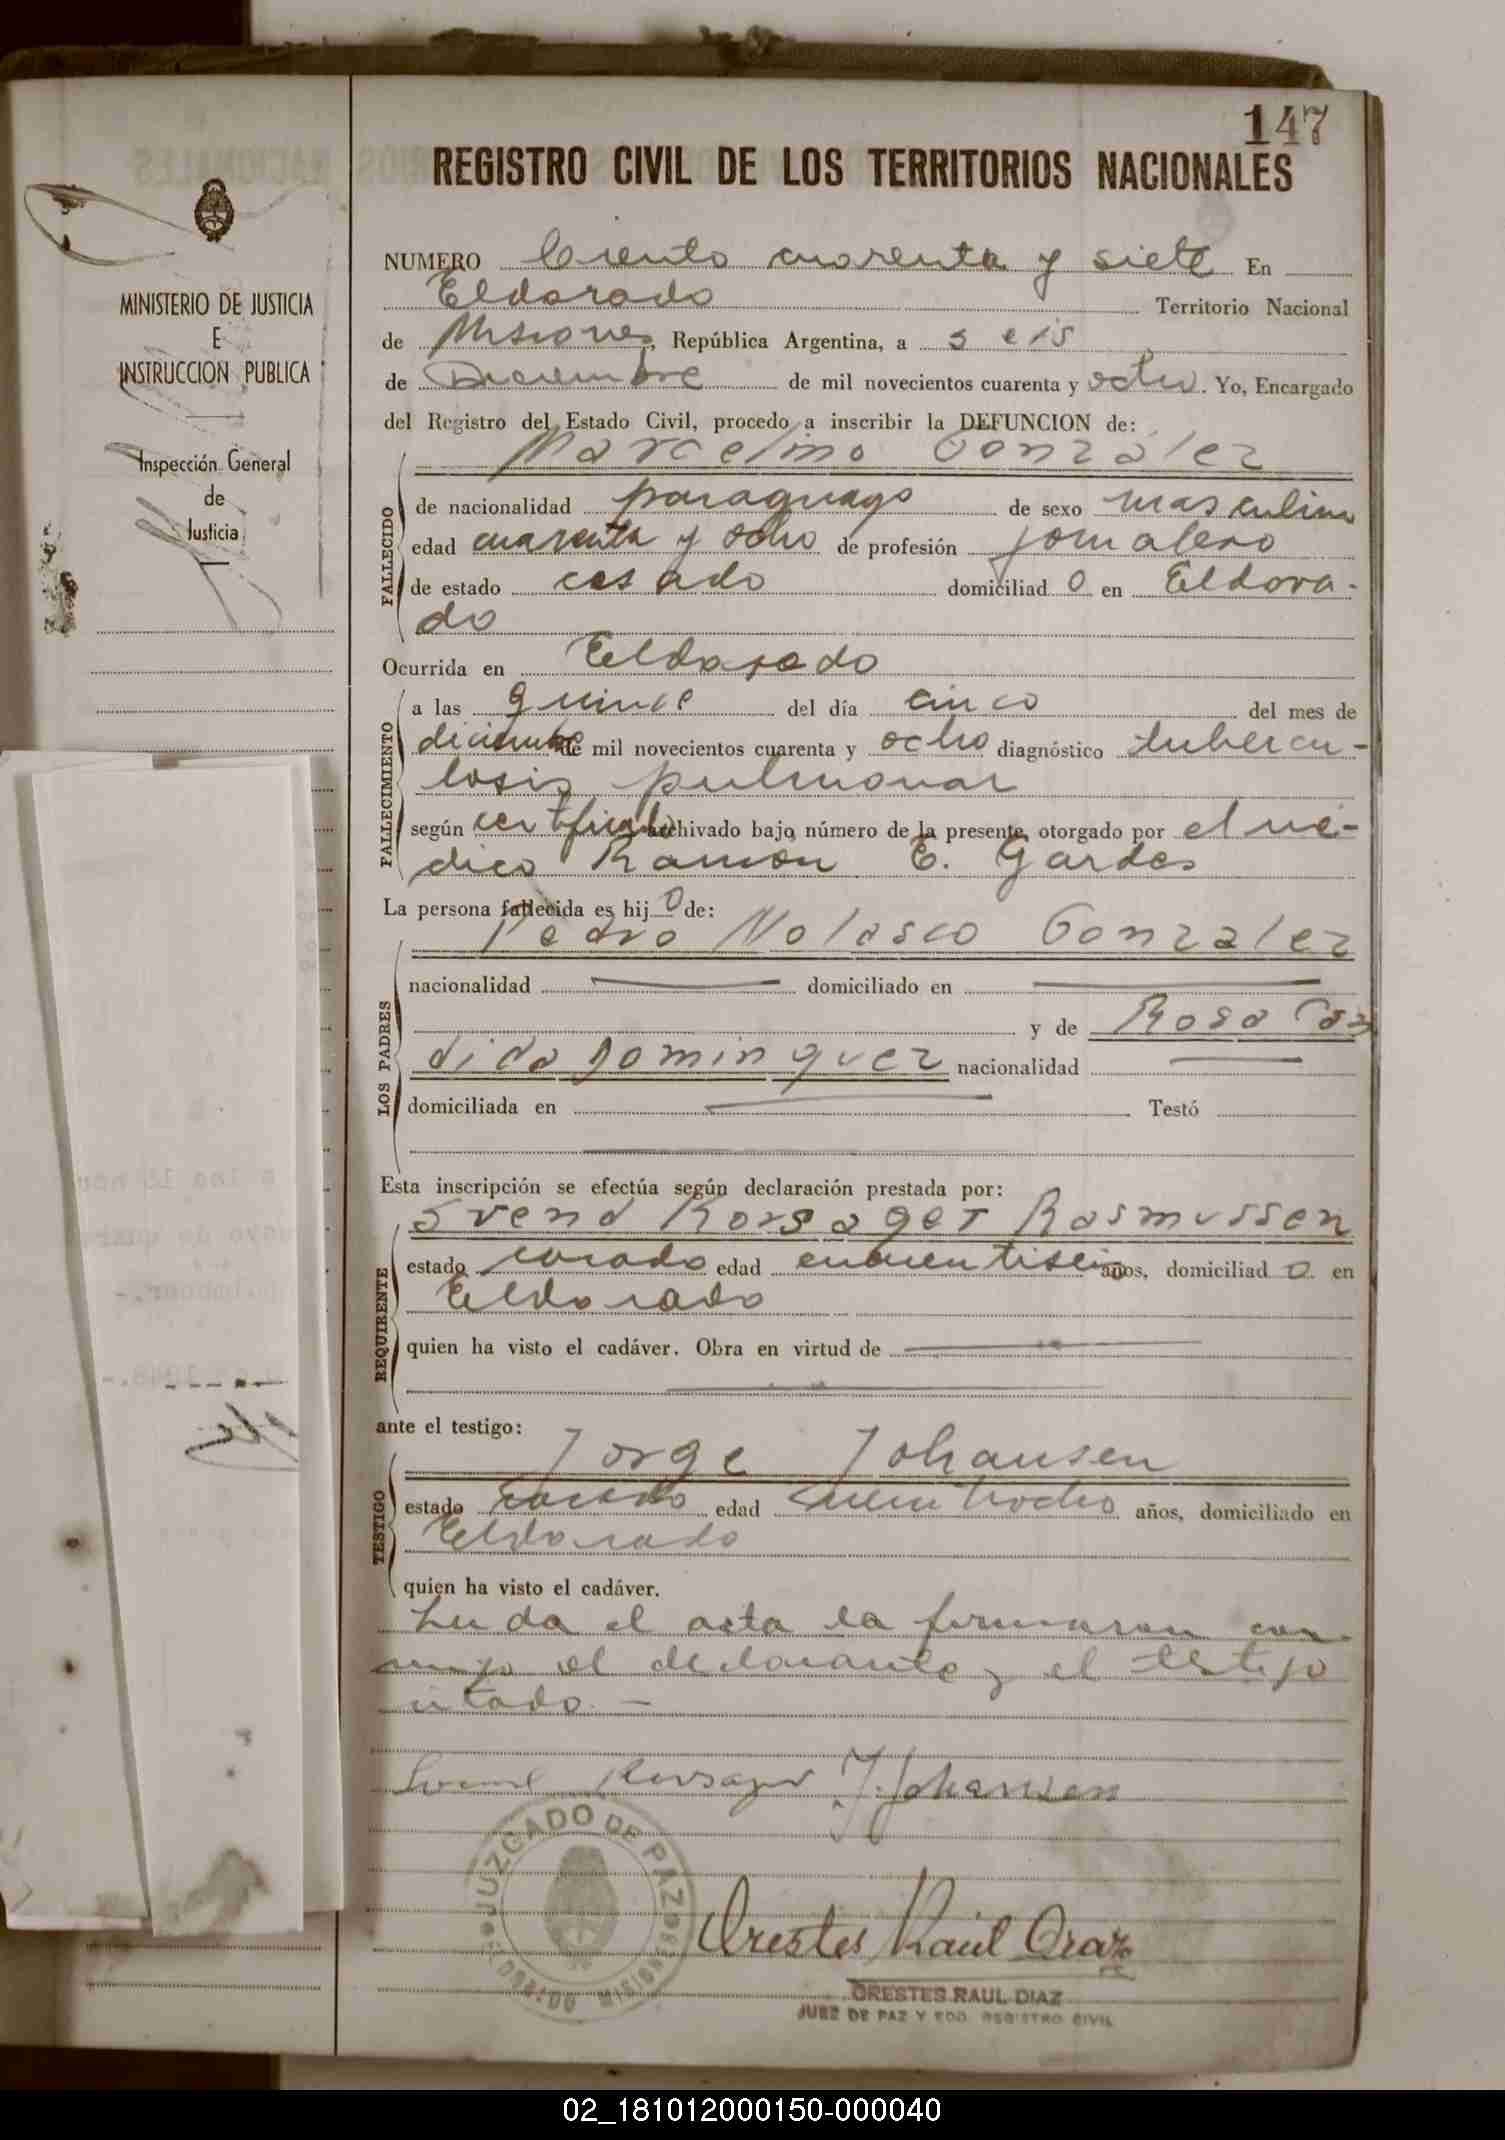 147
REGISTRO CIVIL DE LOS TERRITORIOS NACIONALES
MINISTERIO DE JUSTICIA
E
INSTRUCCION PUBLICA
Inspección General
de
Justicia
NUMERO Ciento cuarenta y siete En
Eldorado Territorio Nacional
de Misiones, República Argentina, a seis
de Diciembre de mil novecientos cuarenta y ocho. Yo, Encargado
del Registro del Estado Civil, procedo a inscribir la DEFUNCION de:
Marcelino Gonzalez
FALLECIDO
de nacionalidad paraguayo de sexo masculino
edad cuarenta y ocho de profesión jornalero
de estado casado domiciliad o en Eldora-
do
Ocurrida en Eldorado
FALLECIMIENTO
a las quince del día cinco del mes de
diciembre de mil novecientos cuarenta y ocho diagnóstico tubercu-
losis pulmonar
según certificado archivado bajo número de la presente, otorgado por el mé-
dico Ramon E. Gardes
La persona fallecida es hij o de:
LOS PADRES
Pedro Nolasco Gonzalez
nacionalidad domiciliado en
y de Rosa Can
dida Dominguez nacionalidad
domiciliada en Testó
Esta inscripción se efectúa según declaración prestada por:
REQUIRENTE
Svend Korsager Rasmussen
estado casado edad cuarentiseis años, domiciliad o en
Eldorado
quien ha visto el cadáver. Obra en virtud de
ante el testigo:
TESTIGO
Jorge Johansen
estado casado edad años, domiciliado en
Eldorado
quien ha visto el cadáver.
Leida el acta la firmaron con-
migo el declarante y el testigo
citado. —
Svend Korsager J. Johansen
JUZGADO DE PAZ
ELDORADO MISIONES
Orestes Raúl Diaz
ORESTES RAUL DIAZ
JUEZ DE PAZ Y EDO. REGISTRO CIVIL
02_181012000150-000040